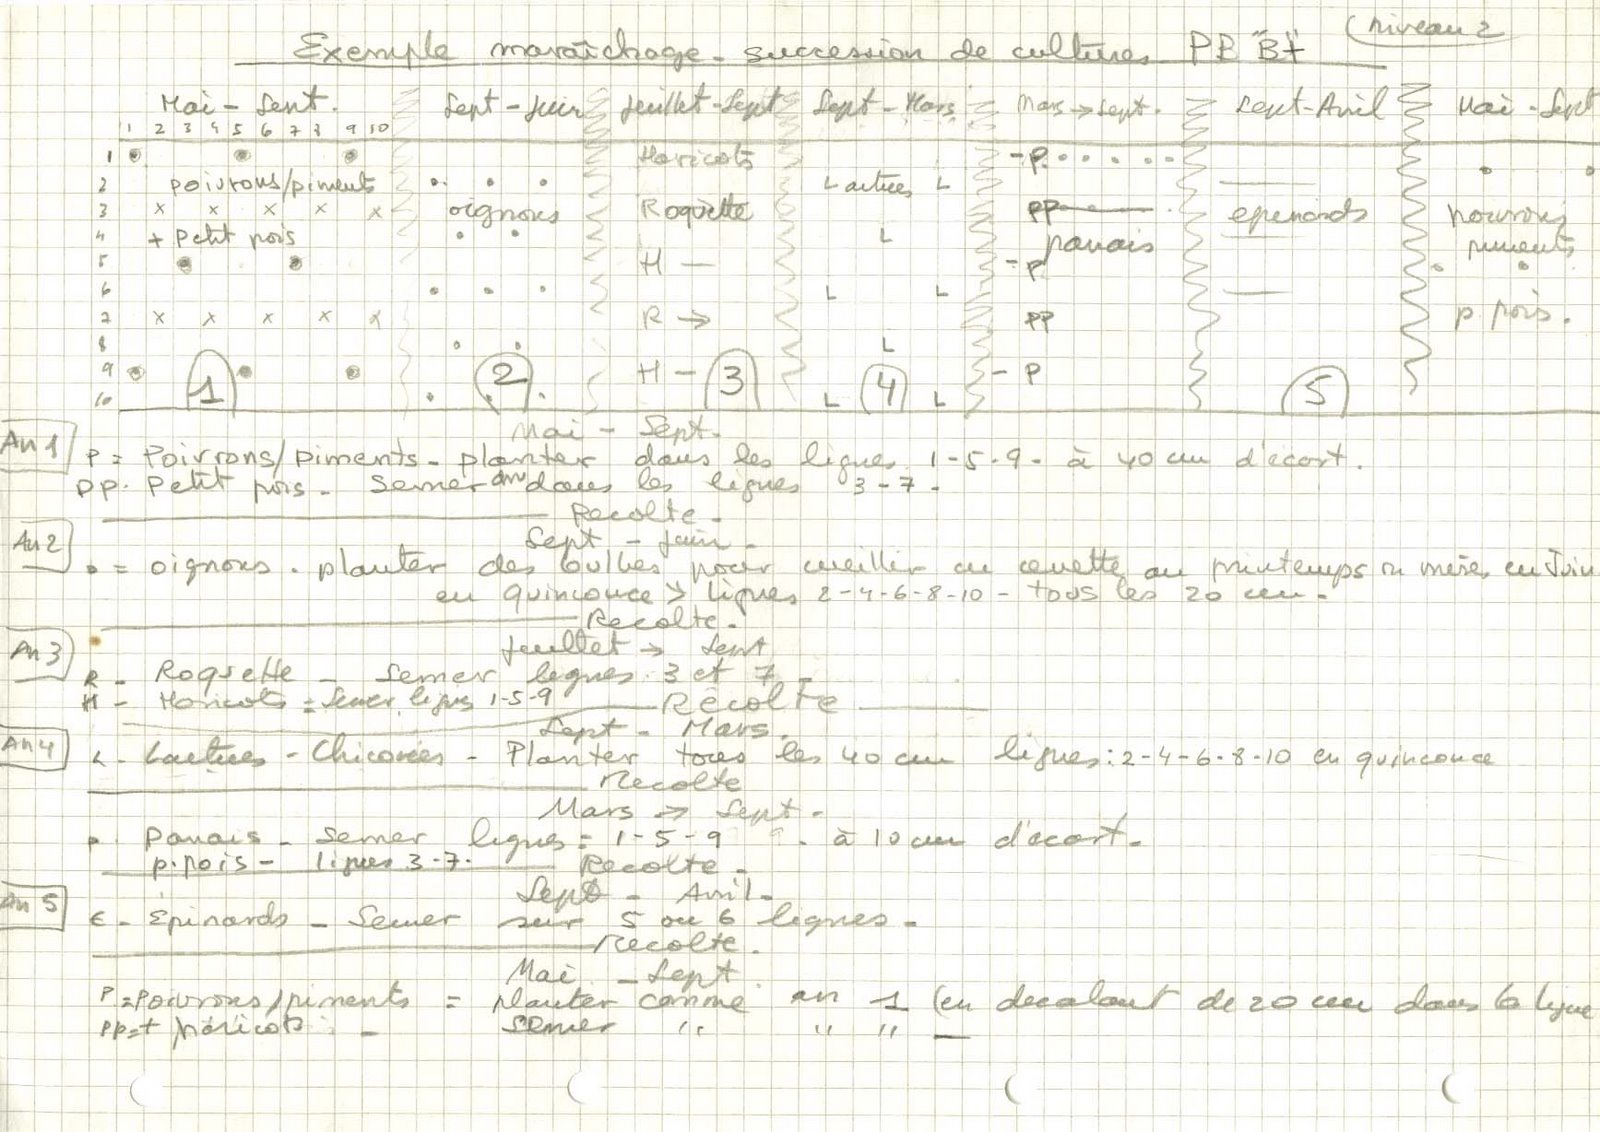 (niveau 2
Exemple maraîchage - succession de cultures PB B+
Mai - Sept. Sept - Juin Juillet - Sept Sept - Mars Mars → Sept. Sept - Avril Mai - Sept
1 2 3 4 5 6 7 8 9 10
1 Haricots - P
2 poivrons/piments Laitues L
3 x x x x x oignons Roquette PP epinards poivrons
4 + Petit pois L panais piments
5 H - P
6 L L
7 x x x x x R → PP p. pois.
8 L
9 H - P
10 L L
1 2 3 4 5
Mai - Sept.
An 1
P = Poivrons/piments - planter dans les lignes 1-5-9- à 40 cm d'écart.
PP. Petit pois - Semer dans les lignes 3-7-
Recolte -
An 2
Sept - Juin -
• = oignons. planter des bulbes pour cueillir en au printemps en Juin
en quinconce > lignes 2-4-6-8-10 - tous les 20 cm.
Recolte.
An 3
Juillet → Sept
R - Roquette - Semer lignes 3 et 7 -
H - Haricots = Semer lignes 1-5-9 Récolte
An 4
Sept - Mars.
L - Laitues - Chicorées - Planter tous les 40 cm lignes: 2-4-6-8-10 en quinconce
Recolte
Mars → Sept -
p. Panais - Semer lignes = 1-5-9 - à 10 cm d'ecart.
p. pois - lignes 3-7. Recolte -
An 5
Sept - Avril -
E - Épinards - Semer sur 5 ou 6 lignes -
Recolte.
Mai - Sept
P = Poivrons/piments = planter comme an 1 (en decalant de 20 cm dans la ligne
PP = + haricots - semer " " " -